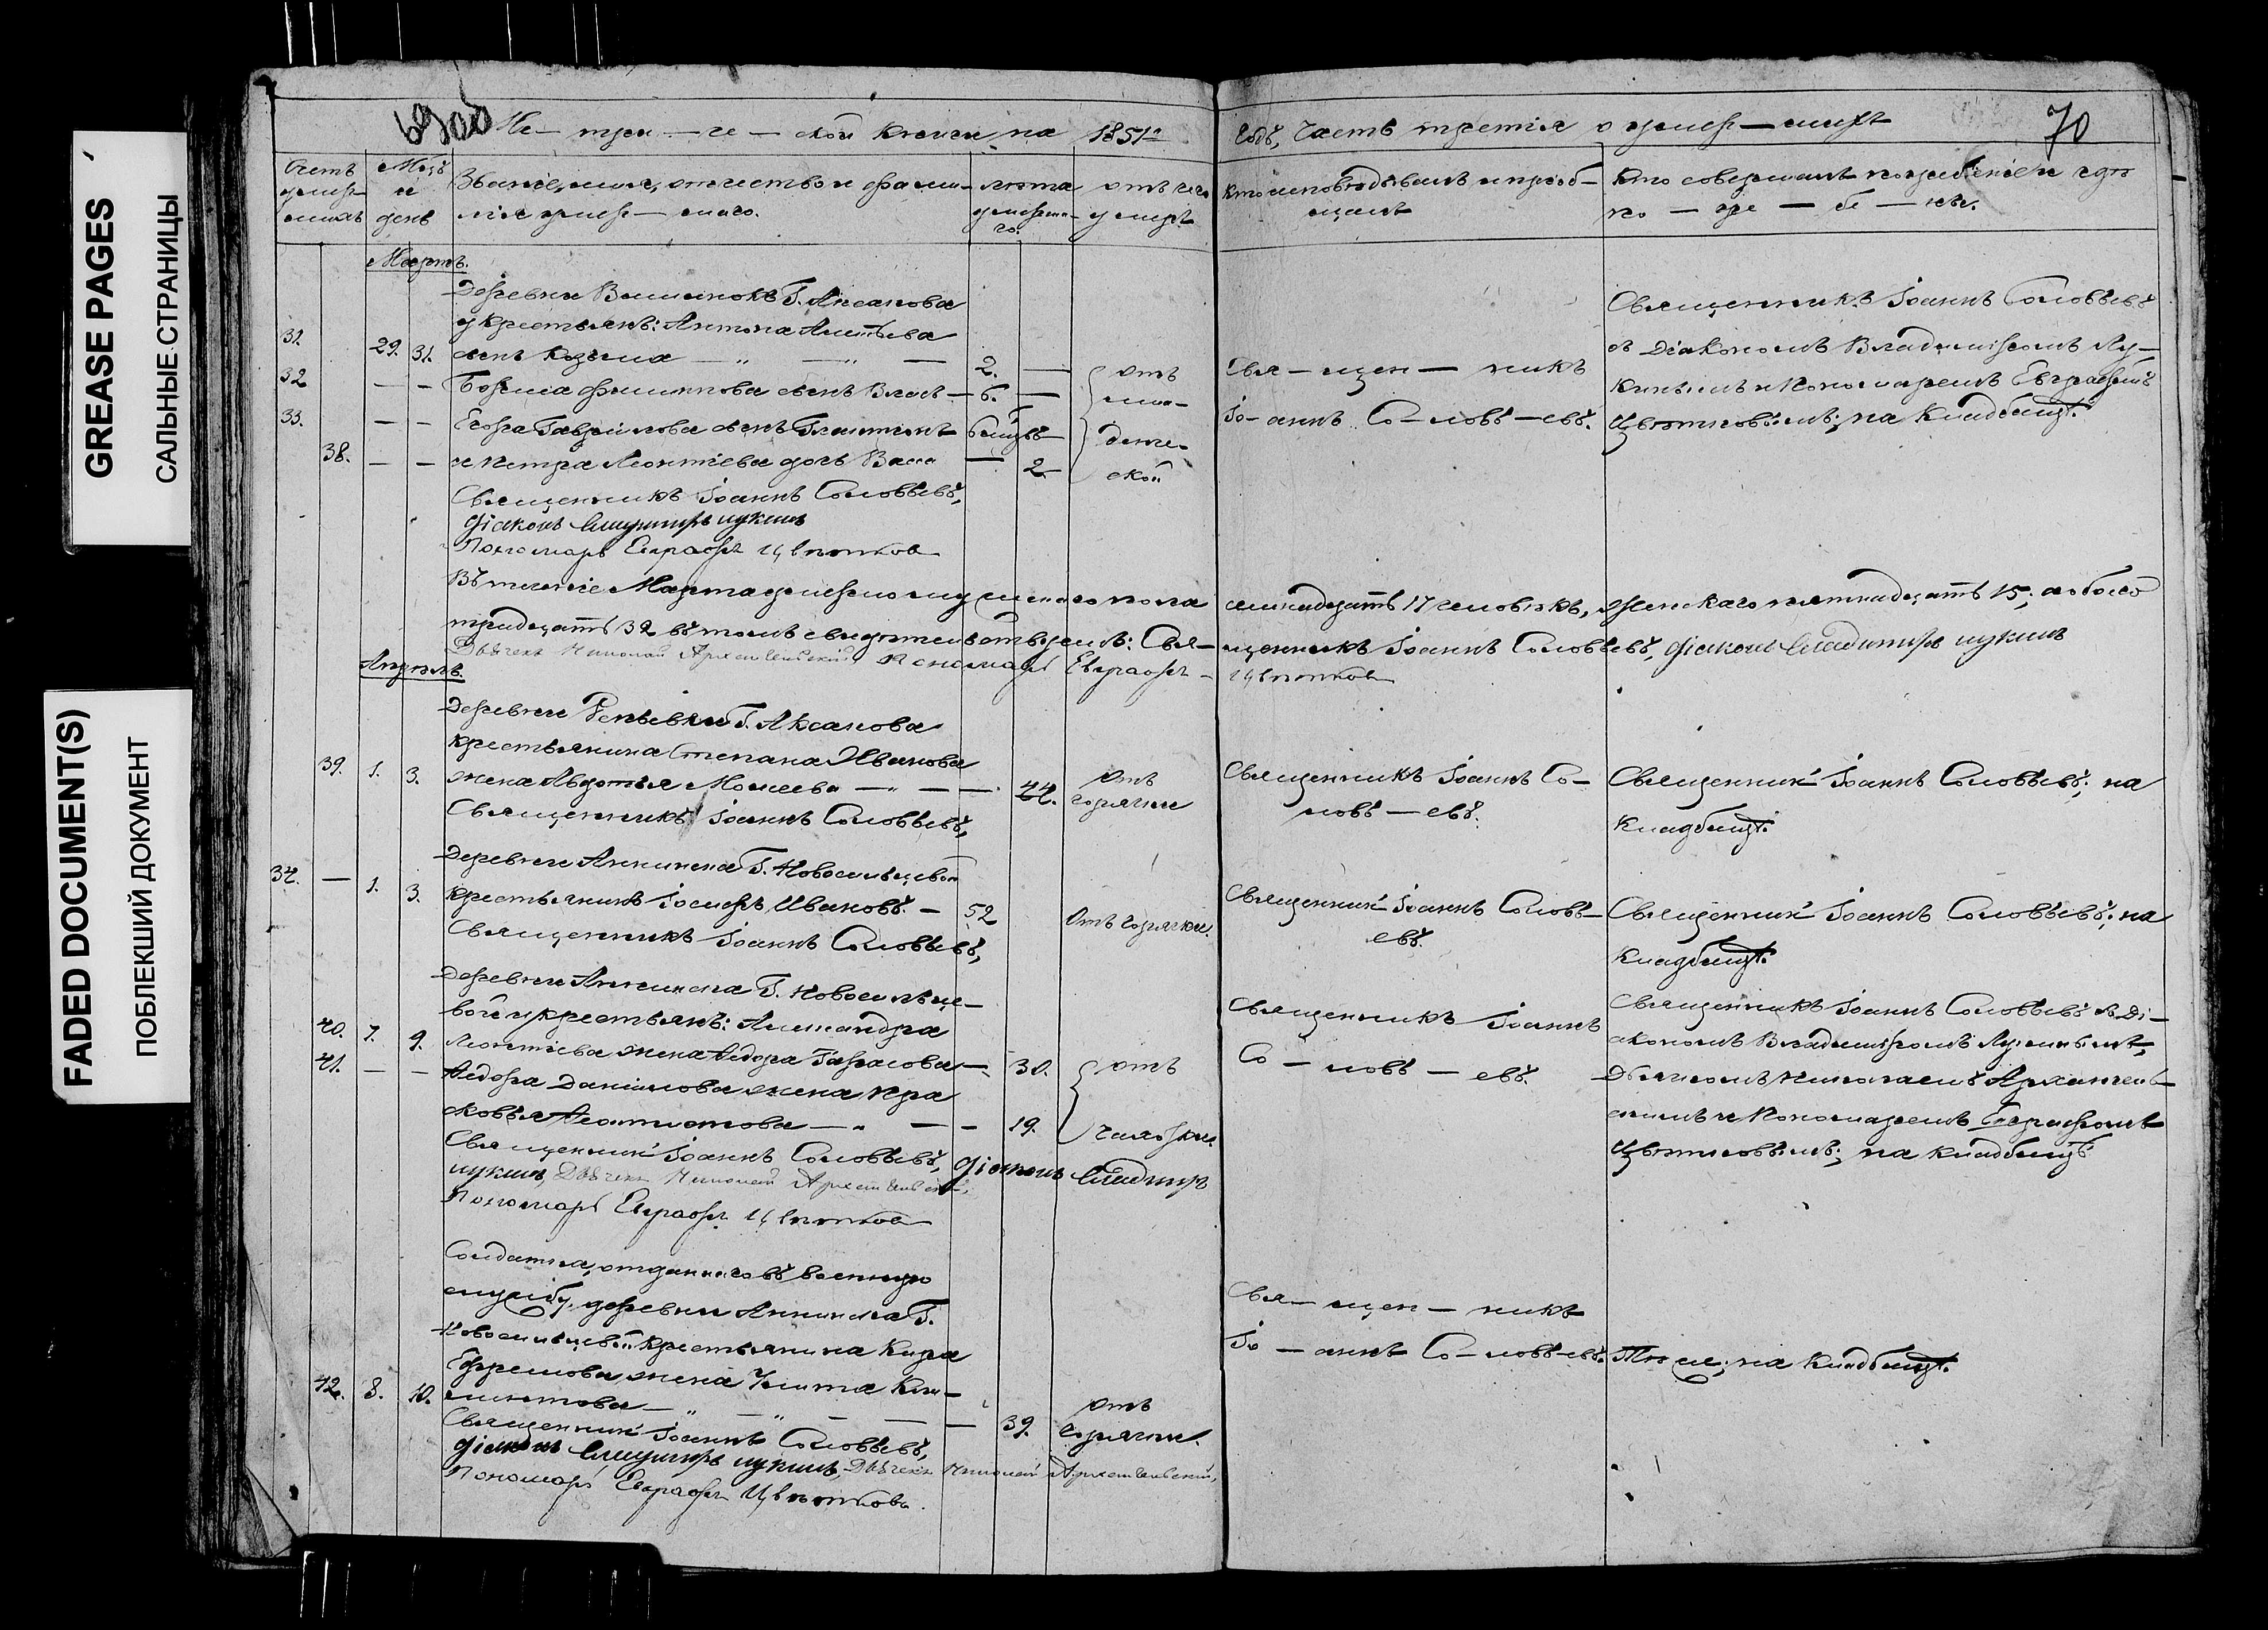 GREASE PAGES
САЛЬНЫЕ СТРАНИЦЫ
FADED DOCUMENT(S)
ПОБЛЕКШИЙ ДОКУМЕНТ
69об
Ме— три —че — ской книги на 1851й
Годъ, Часть третія о умер—шихъ
70
Счетъ умер—шихъ
Мсцъ и день
Званіе, имя, отчество и фами—лія умер—шаго.
лѣта умерша—го.
отъ чего умеръ
Кто исповѣдывалъ и пріоб—щалъ
Кто совершалъ погребеніе и гдѣ по — гре — бе — ны.
Мартъ.
Деревни Г. Аксакова
у крестьянъ: Антона
31. 29. 31. сынъ Козьма — " — " — 2. —
32 — — сынъ Власъ — 6. —
33. — — Егора Гаврилова сынъ Платонъ
38. — — и Петра Леонтіева дочь Васса — 2
отъ
мла—
денче—
ской
Свя—щен — никъ
Іо— аннъ Со—ловь—евъ.
Священникъ Іоаннъ Соловьевъ
съ Діакономъ Владиміромъ Лу—
кинымъ и Пономаремъ Евграфомъ
Цвѣтковымъ; на кладбищѣ.
Священникъ Іоаннъ Соловьевъ,
Діаконъ Владиміръ Лукинъ
Пономарь Евграфъ Цвѣтковъ
Въ теченіе Марта умерло мужескаго пола семнадцать 17 человѣкъ, женскаго пятнадцать 15; а обоего
тридцать 32 въ томъ свидѣтельствуемъ: Свя—щенникъ Іоаннъ Соловьевъ, Діаконъ Владиміръ Лукинъ
Дьячекъ Николай Архангельскій Пономарь Евграфъ Цвѣтковъ
Апрѣль.
Деревни Репьевки Г. Аксакова
крестьянина Степана Иванова
39. 1. 3. жена Авдотья Моисеева — " — — 44.
отъ
горячки
Священникъ Іоаннъ Со—
ловь — евъ.
Священникъ Іоаннъ Соловьевъ; на
кладбищѣ.
Священникъ Іоаннъ Соловьевъ,
Деревни Аннинска Г. Новосильцевой
34. — 1. 3. крестьянинъ Іосифъ Ивановъ. — 52
Отъ горячки.
Священникъ Іоаннъ Соловь—
евъ.
Священникъ Іоаннъ Соловьевъ; на
кладбищѣ.
Священникъ Іоаннъ Соловьевъ,
Деревни Аннинска Г. Новосильце—
вой у крестьянъ: Александра
40. 7. 9. Леонтіева жена Ѳедора Тарасова — 30.
41. — — Ѳедора Даніилова жена Пра
сковья Ѳеоктистова — " — — 19.
отъ
чахотки
Священникъ Іоаннъ
Со — ловь — евъ.
Священникъ Іоаннъ Соловьевъ съ Ді—
акономъ Владиміромъ Лукинымъ,
Дьячкомъ Николаемъ Архангель—
скимъ и Пономаремъ Евграфомъ
Цвѣтковымъ; на кладбищѣ
Священникъ Іоаннъ Соловьевъ, Діаконъ Владиміръ
Лукинъ, Дьячекъ Николай Архангельскій,
Пономарь Евграфъ Цвѣтковъ
Солдатка, отданнаго въ военную
службу, деревни Аннинска Г.
Новосильцевой крестьянина Кира
Ефремова, жена Улита Кли—
42. 8. 10. ментова — " — " — — — 39.
отъ
горячки.
Свя— щен — никъ
Іо — аннъ Со—ловь—евъ.
Тѣ же; на кладбищѣ.
Священникъ Іоаннъ Соловьевъ,
Діаконъ Владиміръ Лукинъ, Дьячекъ Николай Архангельскій,
Пономарь Евграфъ Цвѣтковъ.